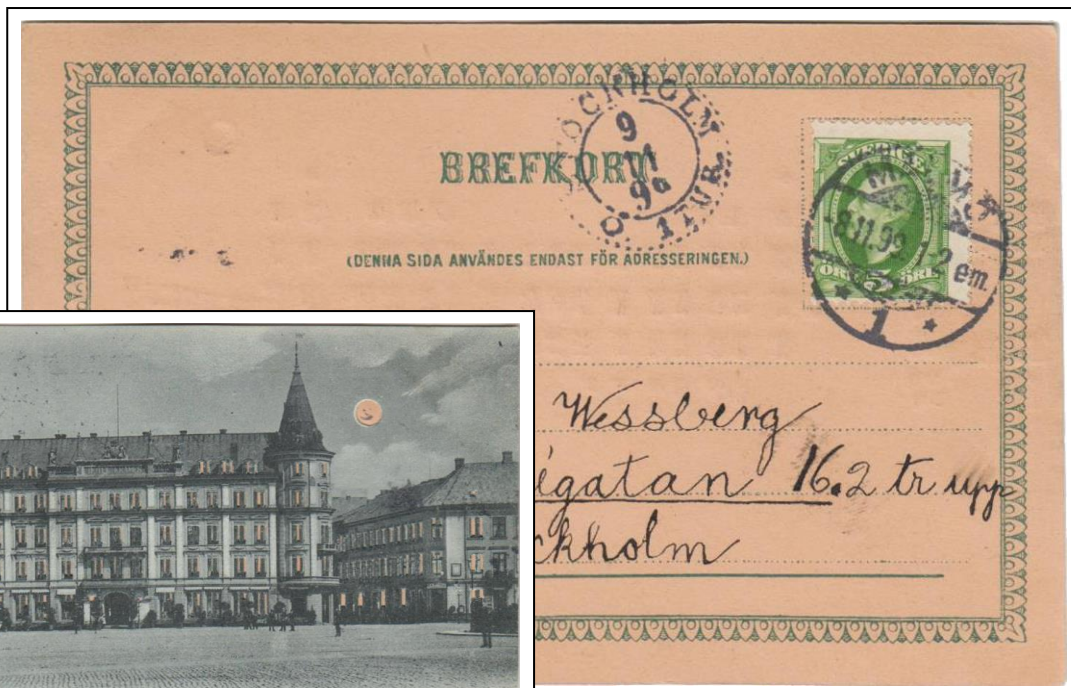 STOCKHOLM
9
11
99
1 TUR.
BREFKORT
(DENNA SIDA ANVÄNDES ENDAST FÖR ADRESSERINGEN.)
SVERIGE
ÖRE 5 ÖRE
8.11.99 1-2 em.
1
Wessberg
gatan 16.2 tr upp
ckholm